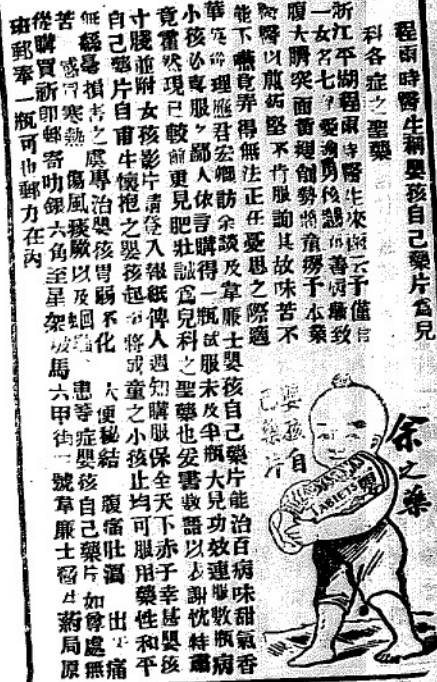 程雨時醫生稱嬰孩自己藥片爲兒
科各症之聖藥
浙江平湖程雨時醫生來函云予僅有
一女名七
腹大臍突面黃
醫以煎 堅不肯服詢其故味苦不
能下嚥竟弄得無法正在憂思之際適
華 經理應君宏 訪余談及韋廉士嬰孩自己藥片能治百病味甜氣香
小孩必喜服 鄙人依言購得一瓶試服未及半瓶大見功效連服數瓶病
竟霍然現已較前更見肥壯誠爲兒科之聖藥也爰書數語以表謝忱特肅
寸牋並附女孩影片請登入報紙俾人週知購服保全天下赤子幸甚嬰孩
自己藥片自甫生懷抱之嬰孩起 將成童之小孩止均可服用藥性和平
無絲毫損害之虞專治嬰孩胃弱不化 大便秘結 腹痛肚瀉 出牙痛
苦 感冒寒熱 傷風痰厥以及 患等症嬰孩自己藥片如尊處無
從購買祈即郵寄叻銀六角至星架坡馬六甲街 號韋廉士醫生藥局原
班郵奉一瓶可也郵力在內
余之藥
嬰孩自
己藥片
TABLETS